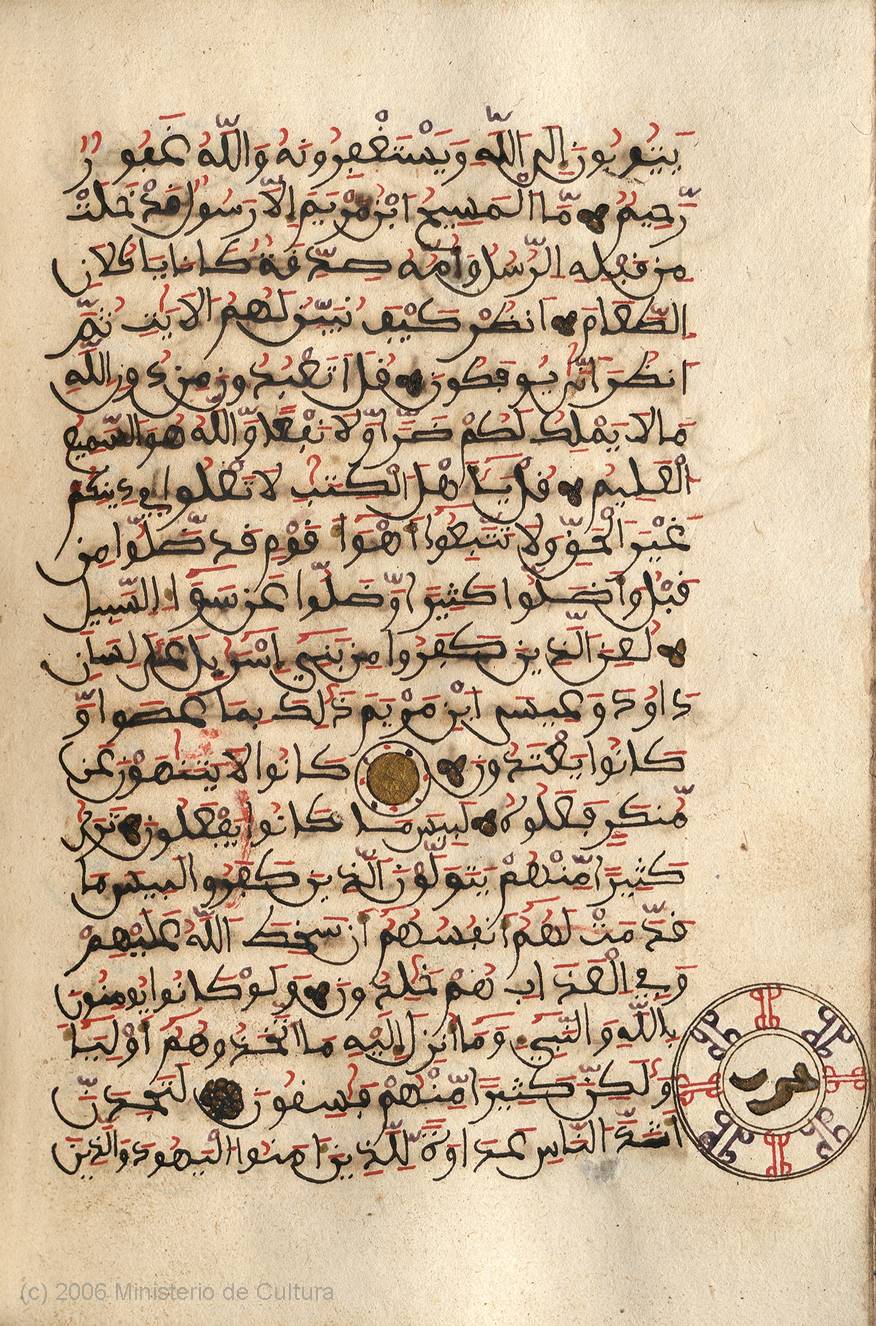 يَتُوبُونَ إِلَى اَللَّهِ وَيَسْتَغْفِرُونَهُۥ وَاللَّهُ غَفُورٌ
رَّحِيمٌ مَّا اَلْمَسِيحُ اُبْنُ مَرْيَمَ إِلَّا رَسُولٌ قَدْ خَلَتْ
مِن قَبْلِهِ اِلرُّسُلُ وَأُمُّهُۥ صِدِّيقَةٌ كَانَا يَاكُلَٰنِ
اِلطَّعَامَ اَنظُرْ كَيْفَ نُبَيِّنُ لَهُمُ اُلْأَيَٰتِ ثُمَّ
اَنظُرَ اَنَّىٰ يُوفَكُونَ قُلَ اَتَعْبُدُونَ مِن دُونِ اِللَّهِ
مَا لَا يَمْلِكُ لَكُمْ ضَرّاً وَلَا نَفْعاً وَاللَّهُ هُوَ اَلسَّمِيعُ
اُلْعَلِيمُ قُلْ يَٰأَهْلَ اَلْكِتَٰبِ لَا تَغْلُوا فِي دِينِكُمْ
غَيْرَ اَلْحَقِّ وَلَا تَتَّبِعُوا أَهْوَاءَ قَوْمٍ قَد ضَّلُّوا مِن
قَبْلُ وَأَضَلُّوا كَثِيراً وَضَلُّوا عَن سَوَاءِ اِلسَّبِيلِ
لُعِنَ اَلَّذِينَ كَفَرُوا مِنۢ بَنِي إِسْرَٰءِيلَ عَلَىٰ لِسَانِ
دَاوُۥدَ وَعِيسَى اَبْنِ مَرْيَمَ ذَٰلِكَ بِمَا عَصَوا وَّ
كَانُوا يَعْتَدُونَ كَانُوا لَا يَتَنَاهَوْنَ عَن
مُّنكَرٍ فَعَلُوهُ لَبِيسَ مَا كَانُوا يَفْعَلُونَ تَرَىٰ
كَثِيراً مِّنْهُمْ يَتَوَلَّوْنَ اَلَّذِينَ كَفَرُوا لَبِيسَ مَا
قَدَّمَتْ لَهُمُ أَنفُسُهُمُ أَن سَخِطَ اَللَّهُ عَلَيْهِمْ
وَفِي اِلْعَذَابِ هُمْ خَٰلِدُونَ وَلَوْ كَانُوا يُومِنُونَ
بِاللَّهِ وَالنَّبِيءِ وَمَا أُنزِلَ إِلَيْهِ مَا اَتَّخَذُوهُمُ أَوْلِيَاءَ
وَلَٰكِنَّ كَثِيراً مِّنْهُمْ فَٰسِقُونَ لَتَجِدَنَّ
أَشَدَّ اَلنَّاسِ عَدَٰوَةً لِّلَّذِينَ ءَامَنُوا اُلْيَهُودَ وَالَّذِينَ
حزب
(c) 2006 Ministerio de Cultura